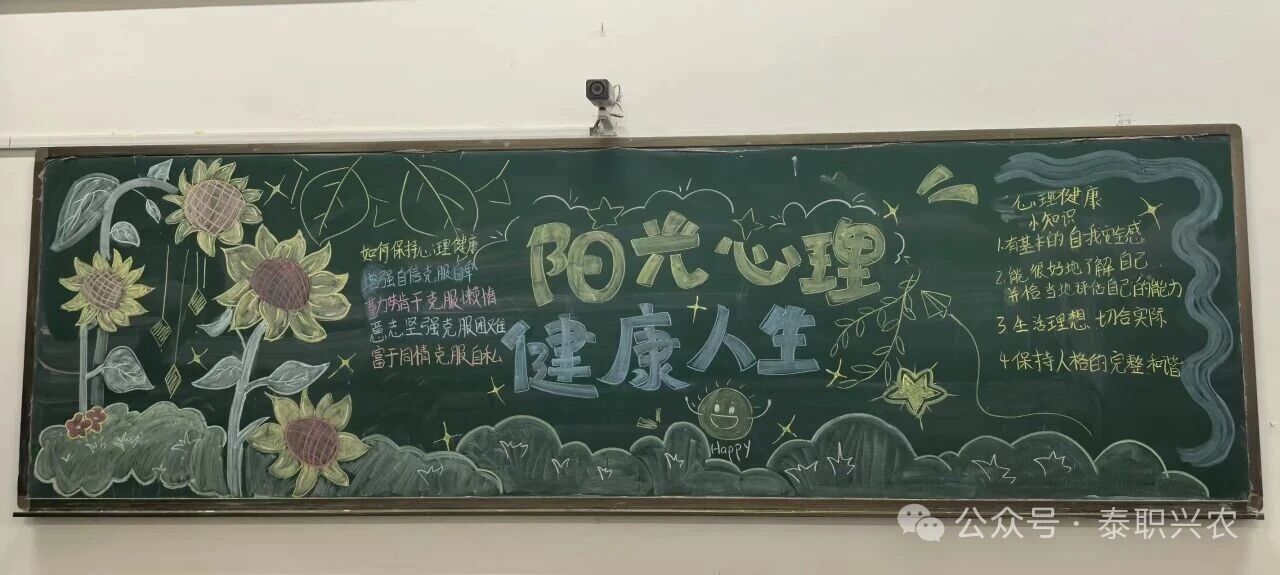 如何保持心理健康
增强自信克服自卑
勤劳肯干克服懒惰
意志坚强克服困难
富于同情克服自私
阳光心理
健康人生
Happy
心理健康
小知识
1.有基本的自我安全感
2.能很好地了解自己
并恰当地评估自己的能力
3.生活理想切合实际
4保持人格的完整和谐
公众号·泰职兴农